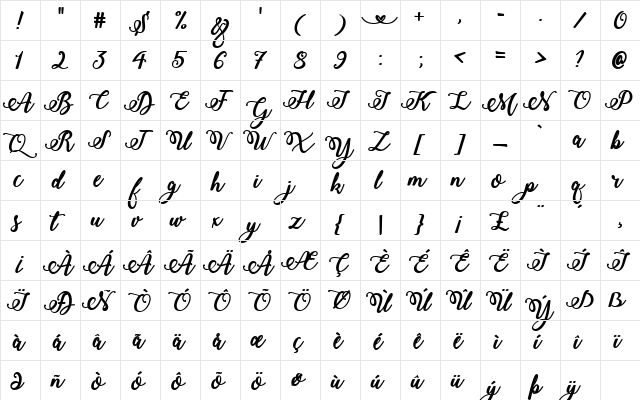 ! " # $ % & ' ( ) + , - . / 0
1 2 3 4 5 6 7 8 9 : ; < = > ? @
A B C D E F G H I J K L M N O P
Q R S T U V W X Y Z [ ] _ ` a b
c d e f g h i j k l m n o p q r
s t u v w x y z { | } ¡ £ ¨ ´ ¸
¿ À Á Â Ã Ä Å Æ Ç È É Ê Ë Ì Í Î
Ï Ð Ñ Ò Ó Ô Õ Ö Ø Ù Ú Û Ü Ý Þ ß
à á â ã ä å æ ç è é ê ë ì í î ï
ð ñ ò ó ô õ ö ø ù ú û ü ý þ ÿ